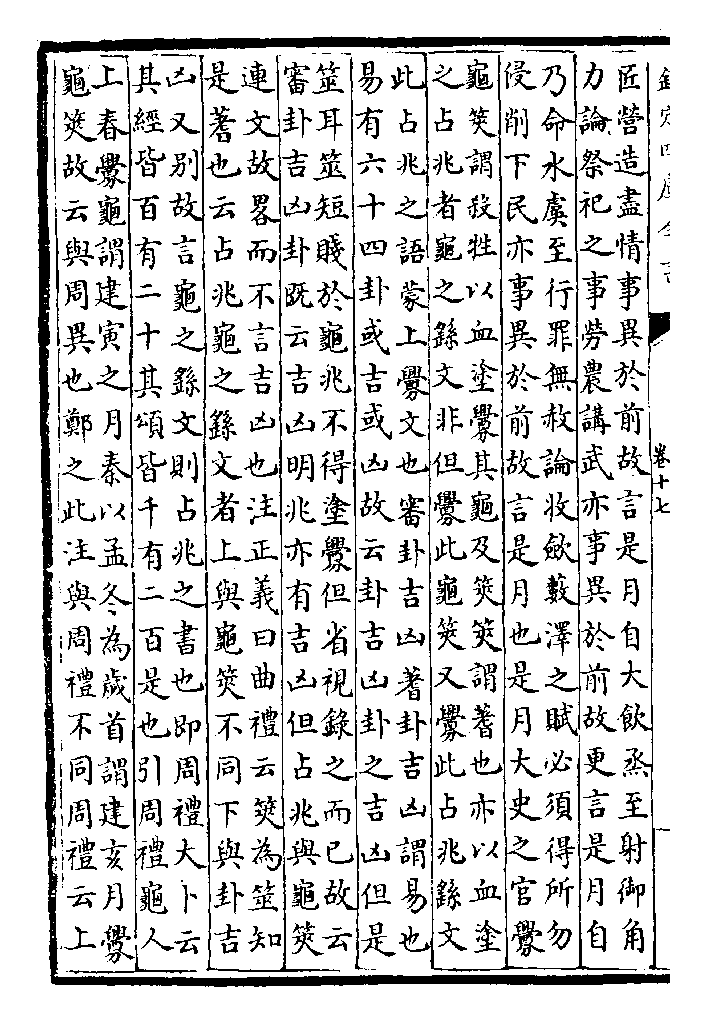 欽定四庫全書
卷十七
匠營造盡情事異於前故言是月自大飲烝至射御角
力論祭祀之事勞農講武亦事異於前故更言是月自
乃命水虞至行罪無赦論收斂藪澤之賦必須得所勿
侵削下民亦事異於前故言是月也是月大史之官釁
龜筴謂殺牲以血塗釁其龜及筴筴謂蓍也亦以血塗
之占兆者龜之繇文非但釁此龜筴又釁此占兆繇文
此占兆之語蒙上釁文也審卦吉凶著卦吉凶謂易也
易有六十四卦或吉或凶故云卦吉凶卦之吉凶但是
筮耳筮短賤於龜兆不得塗釁但省視錄之而已故云
審卦吉凶卦既云吉凶明兆亦有吉凶但占兆與龜筴
連文故畧而不言吉凶也注正義曰曲禮云筴為筮知
是蓍也云占兆龜之繇文者上與龜筴不同下與卦吉
凶又別故言龜之繇文則占兆之書也即周禮大卜云
其經皆百有二十其頌皆千有二百是也引周禮龜人
上春釁龜謂建寅之月秦以孟冬為歲首謂建亥月釁
龜筴故云與周異也鄭之此注與周禮不同周禮云上